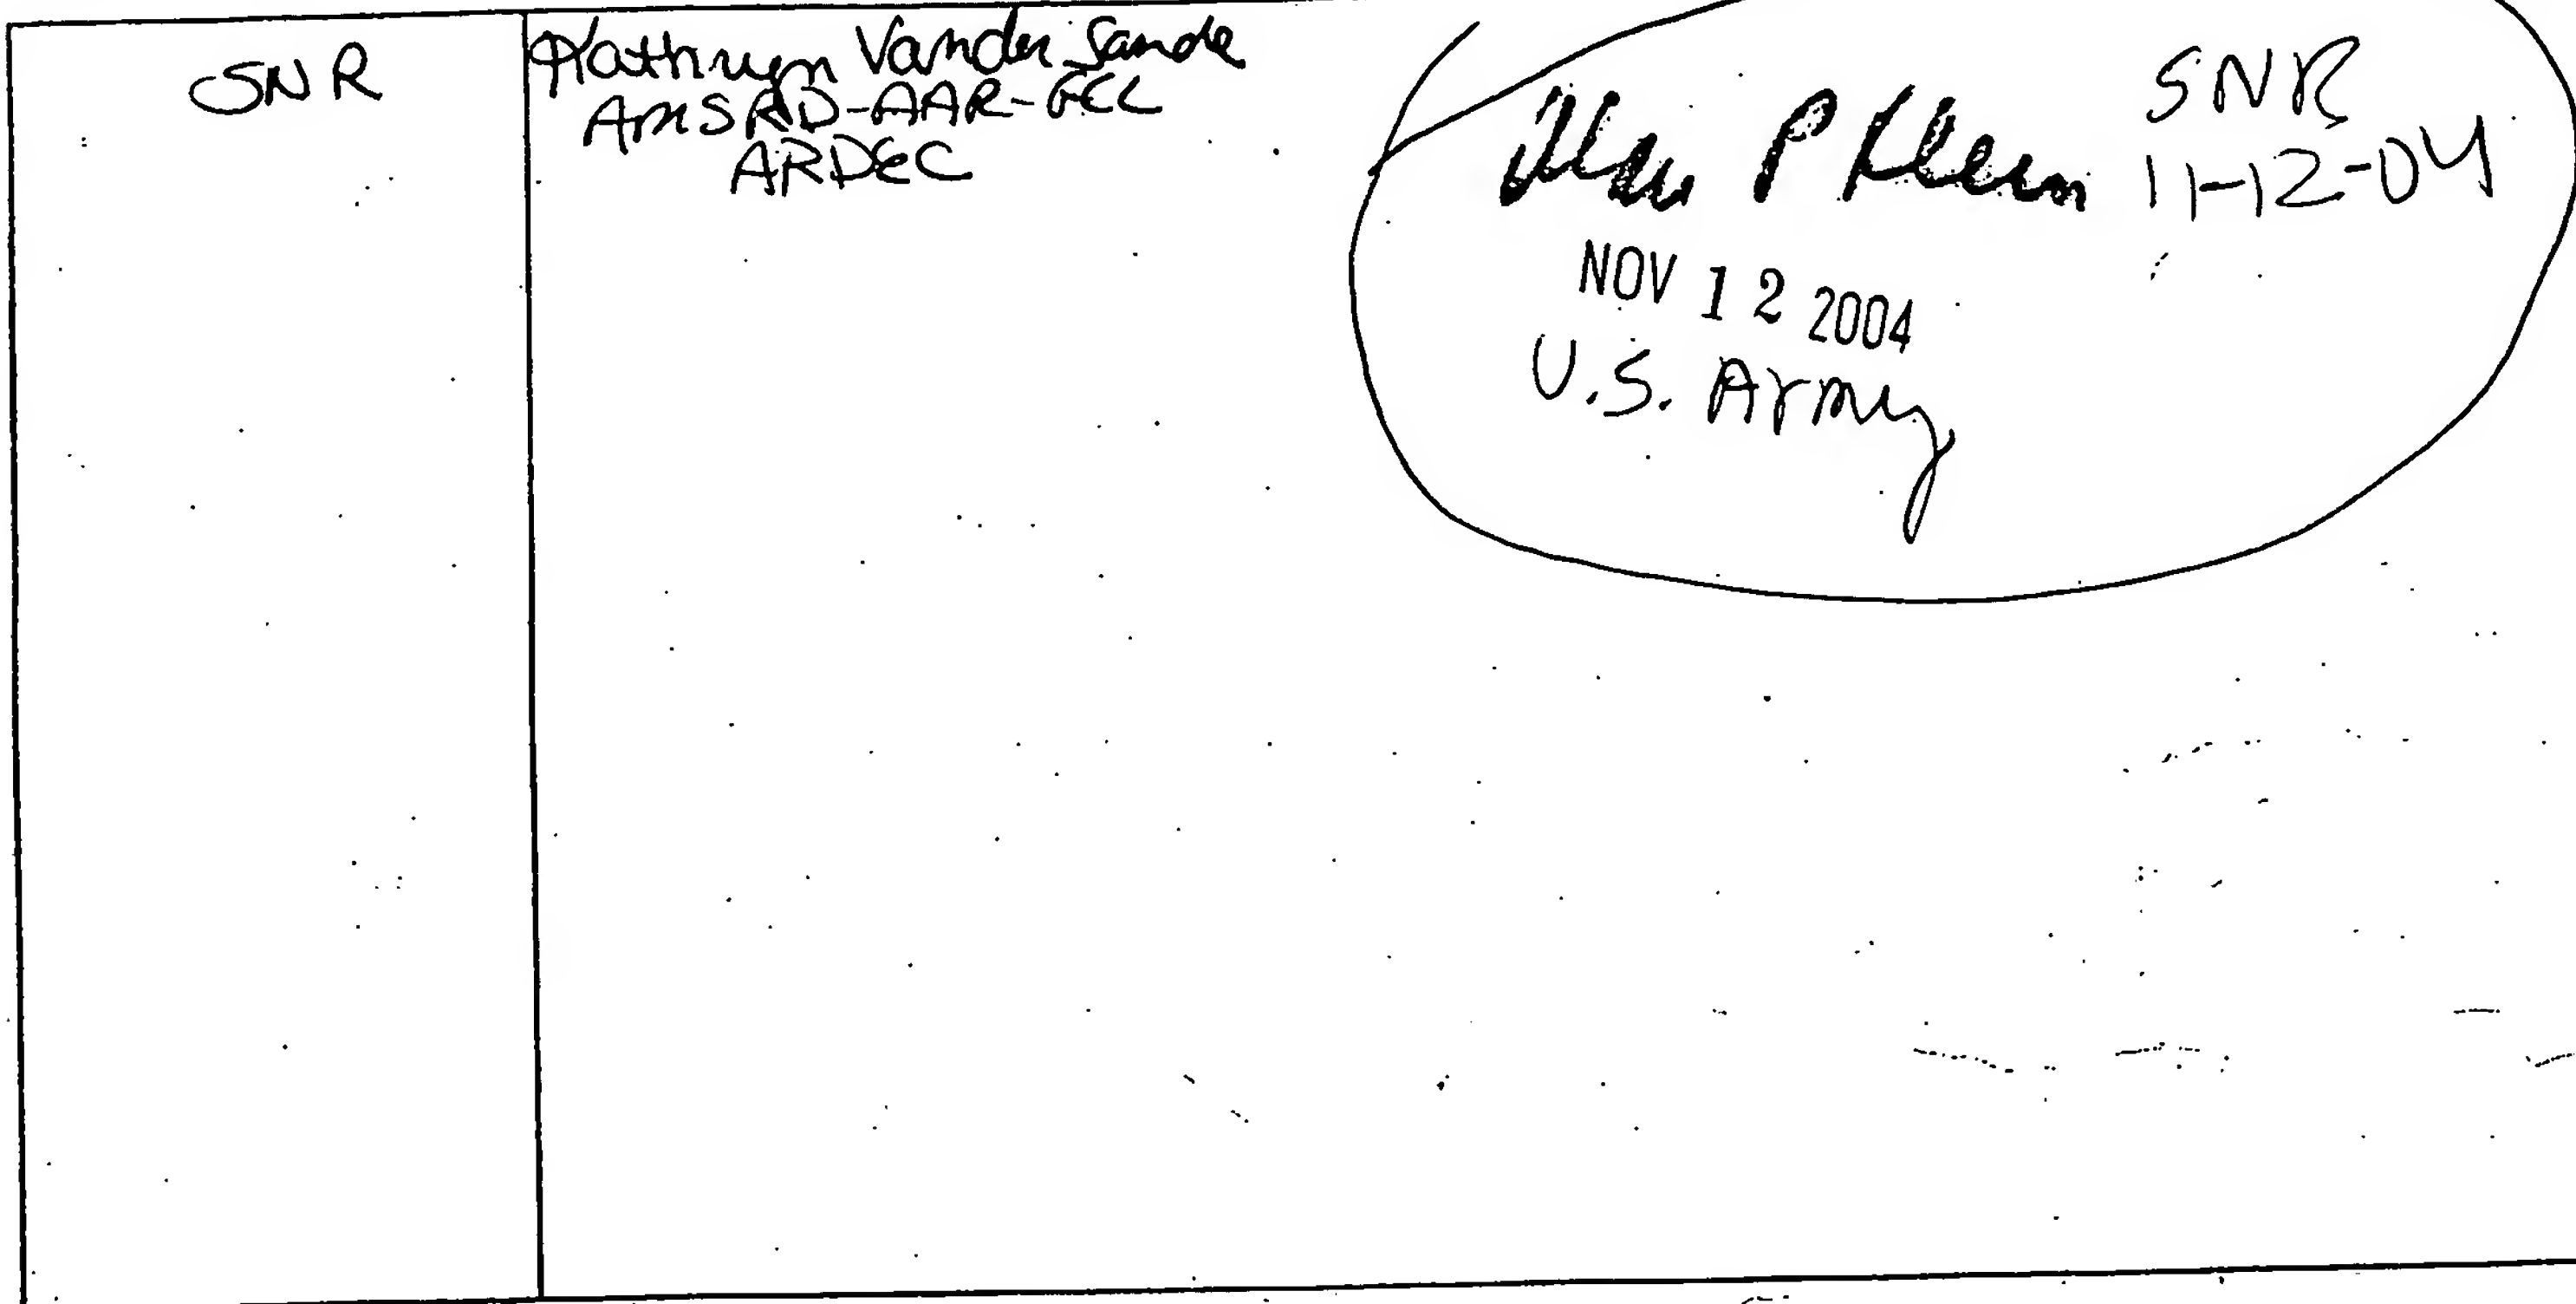 SNR
Kathryn VanderSande
AMSRD-AAR-
ARDEC
P Klein
SNR
11-12-04
NOV 12 2004
U.S. Army